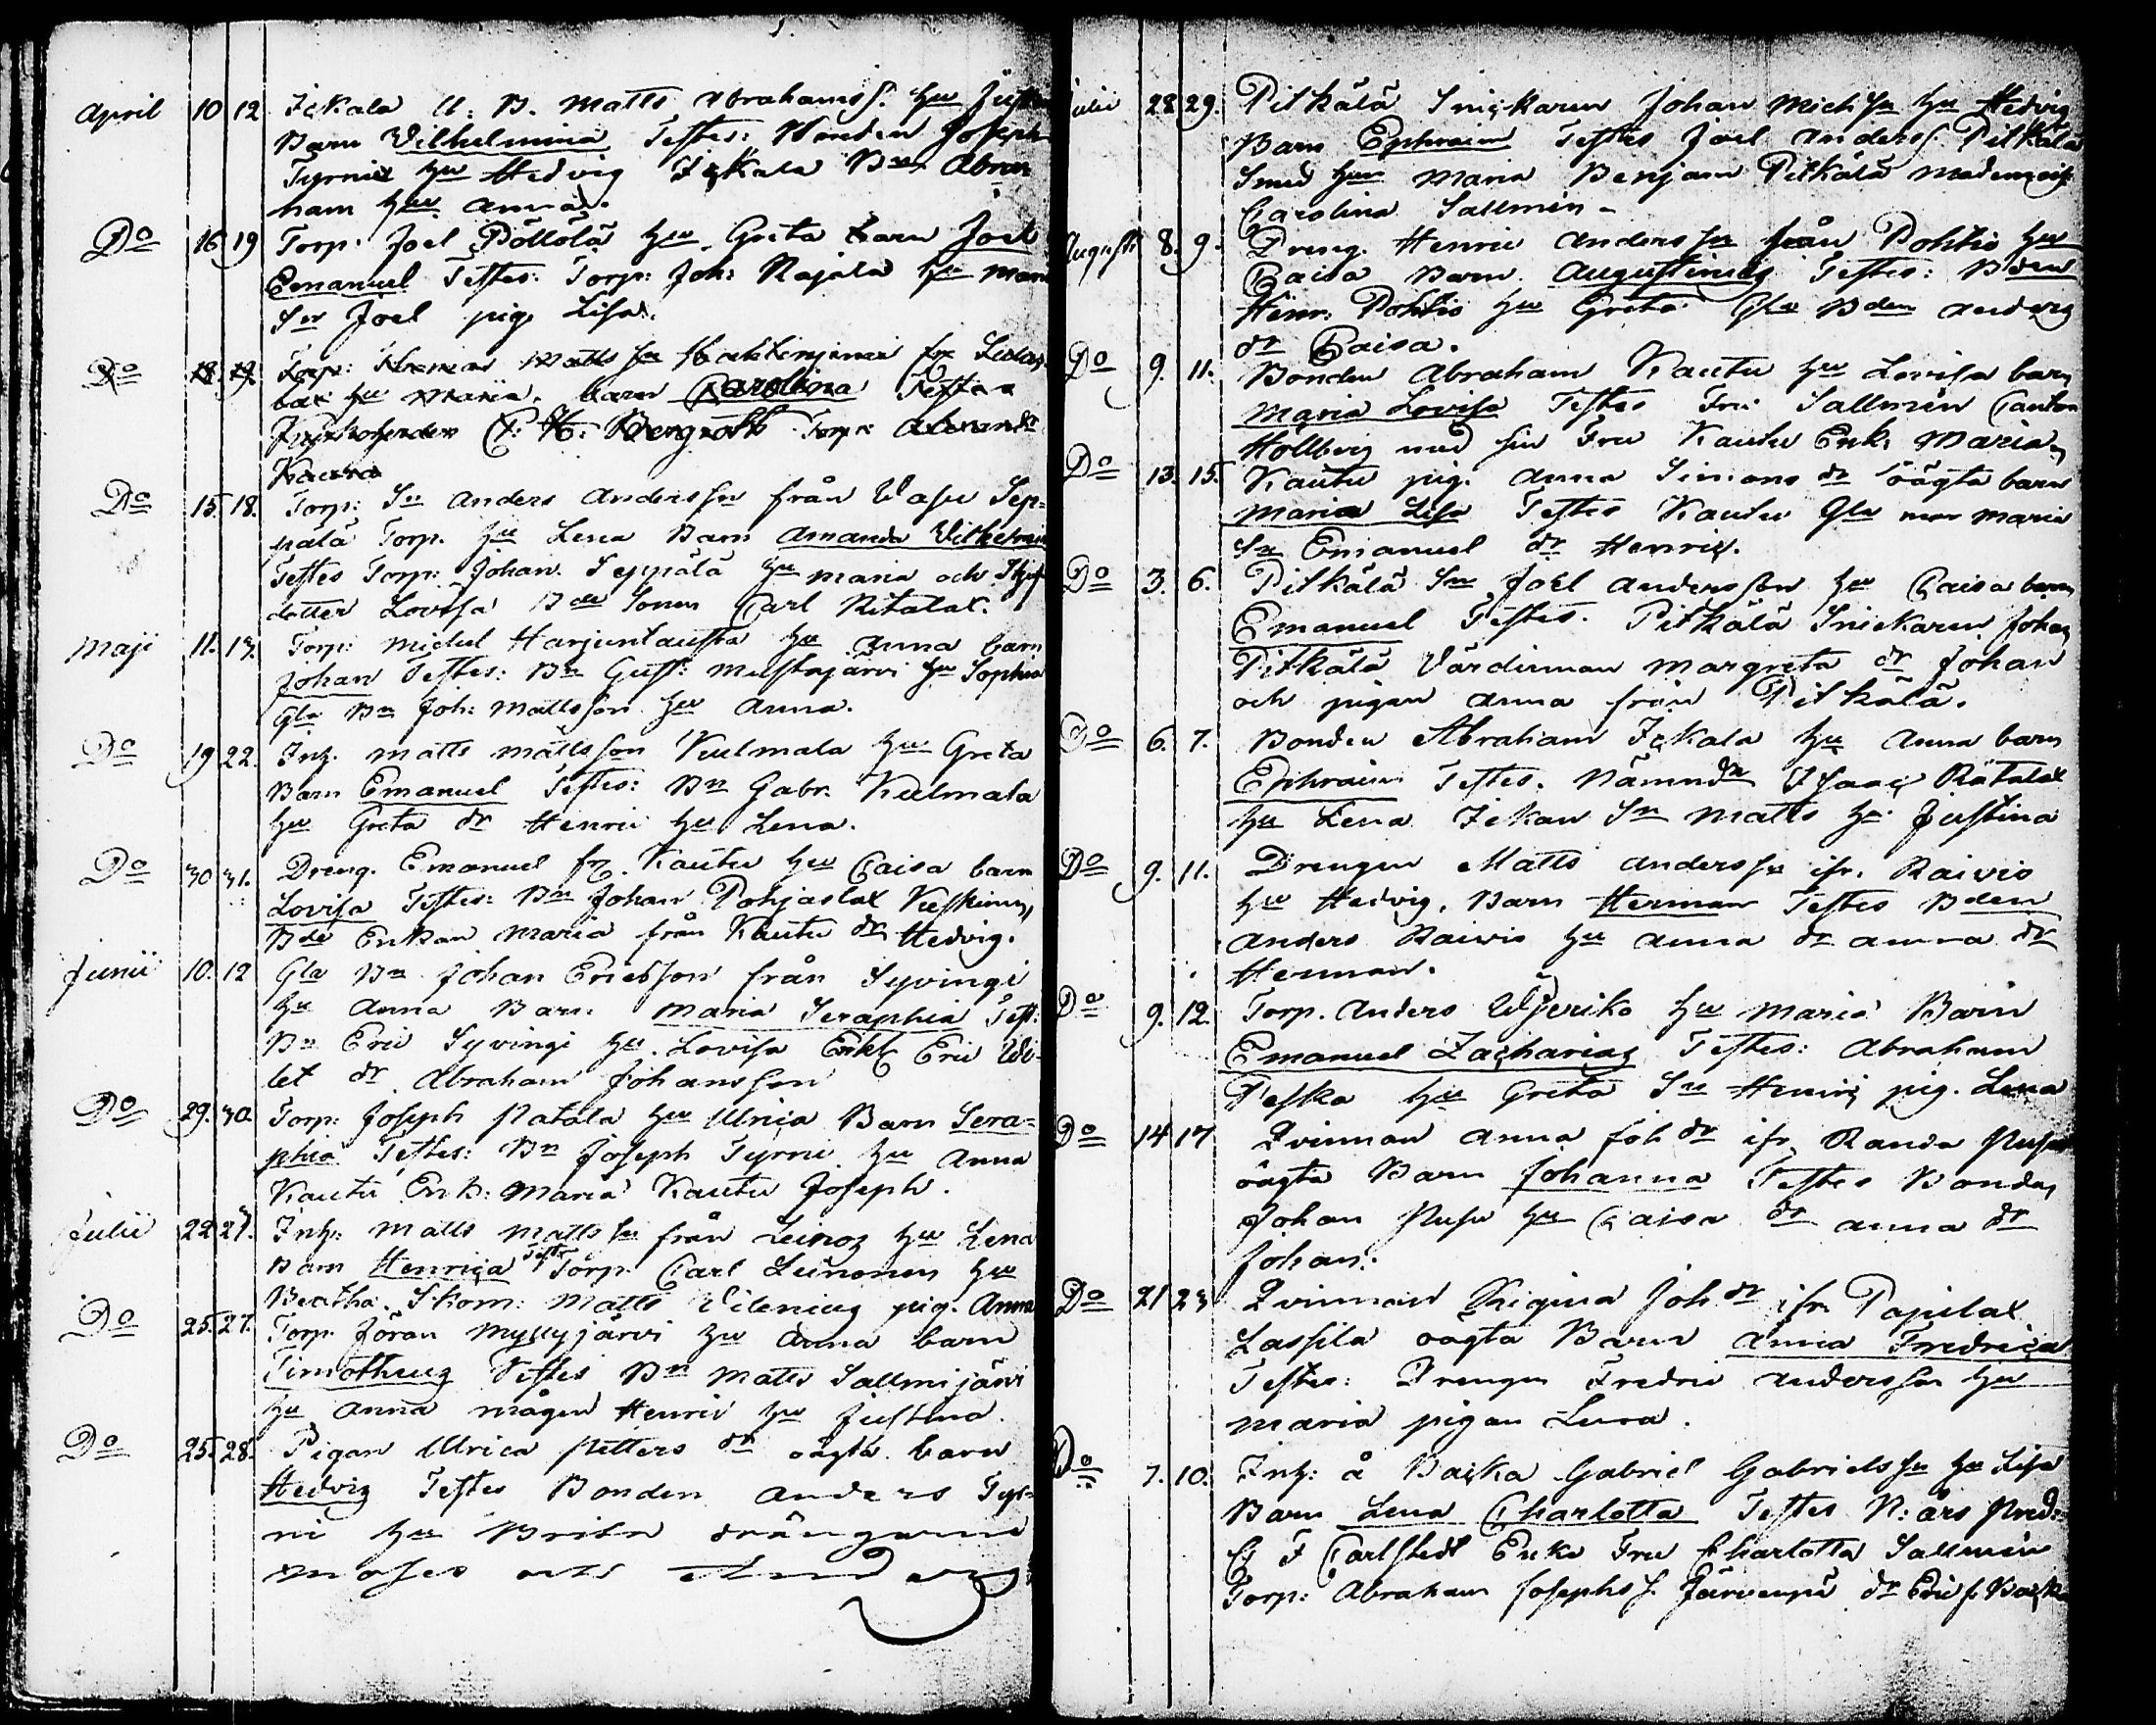 April 10 12 Ickala U: B. Matts Abrahamss. hu
Barn Vilhelmina Testes: Bonden Joseph
Tyrni hu Hedvig Ickala Bn Abra
ham hu Anna.
Do 16 19 Torp. Joel Pöllölä hu Greta barn Joel
Emanuel Testes: Torp: Joh: Rajala hu Mari
Sn Joel pig. Lisa.
Do 18. 19. Torp: Matts sn fr
hu Maria. barn Carolina Testes
C: H: Bergroth Torp:
Kaura
Do 15. 18. Torp: Sn Anders Andersn från Wasu Sep-
pälä Torp. hu Lena Barn Amanda Vilhelmin
Testes Torp: Johan Seppälä hu Maria och
dotter Lovisa Bde Sonen Carl Ritalax.
Maji 11. 13. Torp: Michel Harjuntausta hu Anna barn
Johan Testes: Bn Gust: Mustajärvi hu Sophia
Gla Bn Joh: Mattsson hu Anna.
Do 19 22. Inh. Matts Mattsson Kulmala hu Greta
Barn Emanuel Testes: Bn Gabr. Kulmala
hu Greta dr Henric hu Lena.
Do 30 31. Dreng. Emanuel fr. Kautu hu Caisa barn
Lovisa Testes: Bn Johan Pohjaslax
Bde Enkan Maria från Kautu dr Hedvig.
Junii 10. 12 Gla Bn Johan Ericsson från Syvingi
hu Anna Barn Maria Seraphia Test:
Bn Eric Syvingi hu Lovisa Enkl Eric
let dr Abraham Johansson
Do 29. 30. Torp: Joseph Natala hu Ulrica Barn Sera-
phia Testes: Bn Joseph Tyrni hu Anna
Kautu Enk: Maria Kautu Joseph.
Julii 22 23. Inh: Matts Mattsn från Leinoz hu Lena
Barn Henrica Testes Torp. Carl Leinonen hu
Beatha. Skom: Matts Vilenius pig. Anna
Do 25. 27. Torp. Jöran Myllyjärvi hu Anna barn
Timotheus Testes Bn Matts Sallmijärvi
hu Anna mågen Henric hu Justina.
Do 25. 28. Pigan Ulrica Petters dr oägta barn
Hedvig Testes Bonden Anders Tyr-
ni hu Brita drängarne
Moses och
Julii 28 29. Pitkälä Snickaren Johan Mich sn hu Hedvig
Barn Ephraim Testes Joel Anderss. Pitkälä
Smed hu Maria Benjam Pitkälä
Carolina Sallmén
Augusti 8. 9. Dreng. Henric Anders sn från Pohtio hu
Caisa Barn Augustinus Testes: Bden
Henr. Pohtio hu Greta Gla Bden Anders
dr Caisa.
Do 9. 11. Bonden Abraham Kautu hu Lovisa barn
Maria Lovisa Testes Fru Sallmén Cantor
Hollberg med sin Fru Kautu Enk: Maria
Do 13. 15. Kautu pig. Anna Simons dr oägta barn
Maria Lisa Testes Kautu Gla mor Maria
Sn Emanuel dr Henric.
Do 3. 6. Pitkälä Sn Joel Andersson hu Caisa barn
Emanuel Testes. Pitkälä Snickaren Johan
Pitkälä Värdinnan Margreta dr Johan
och pigan Anna från Pitkälä.
Do 6. 7. Bonden Abraham Ickala hu Anna barn
Ephraim Testes. Nämndn Isaac Rätalax
hu Lena Ickau Sn Matts hu Justina
Do 9. 11. Drengen Matts Anders sn ifr. Raivio
hu Hedvig, Barn Herman Testes Bden
Anders Raivio hu Anna dr Anna dr
Herman.
Do 9. 12. Torp. Anders hu Maria Barn
Emanuel Zacharias Testes: Abraham
Peska hu Greta Sn Henric pig. Lena
Do 14 17 Qvinnan Anna Joh dr ifr. Randa
oägta Barn Johanna Testes Bonden
Johan hu Caisa dr Anna dr
Johan.
Do 21 23 Qvinnan Regina Joh dr ifr. Papilax
Lassila oägta Barn Anna Fredrica
Testes: Drengen Fredric Andersson hu
Maria pigan Lena.
Do 7. 10. Inh: å Backa Gabriel Gabriels sn hu Lisa
Barn Lena Charlotta Testes N: års Pred:
C F Carlstedt Enke Fru Charlotta Sallmén
Torp: Abraham Josephs s. Järvenpä dr Eric